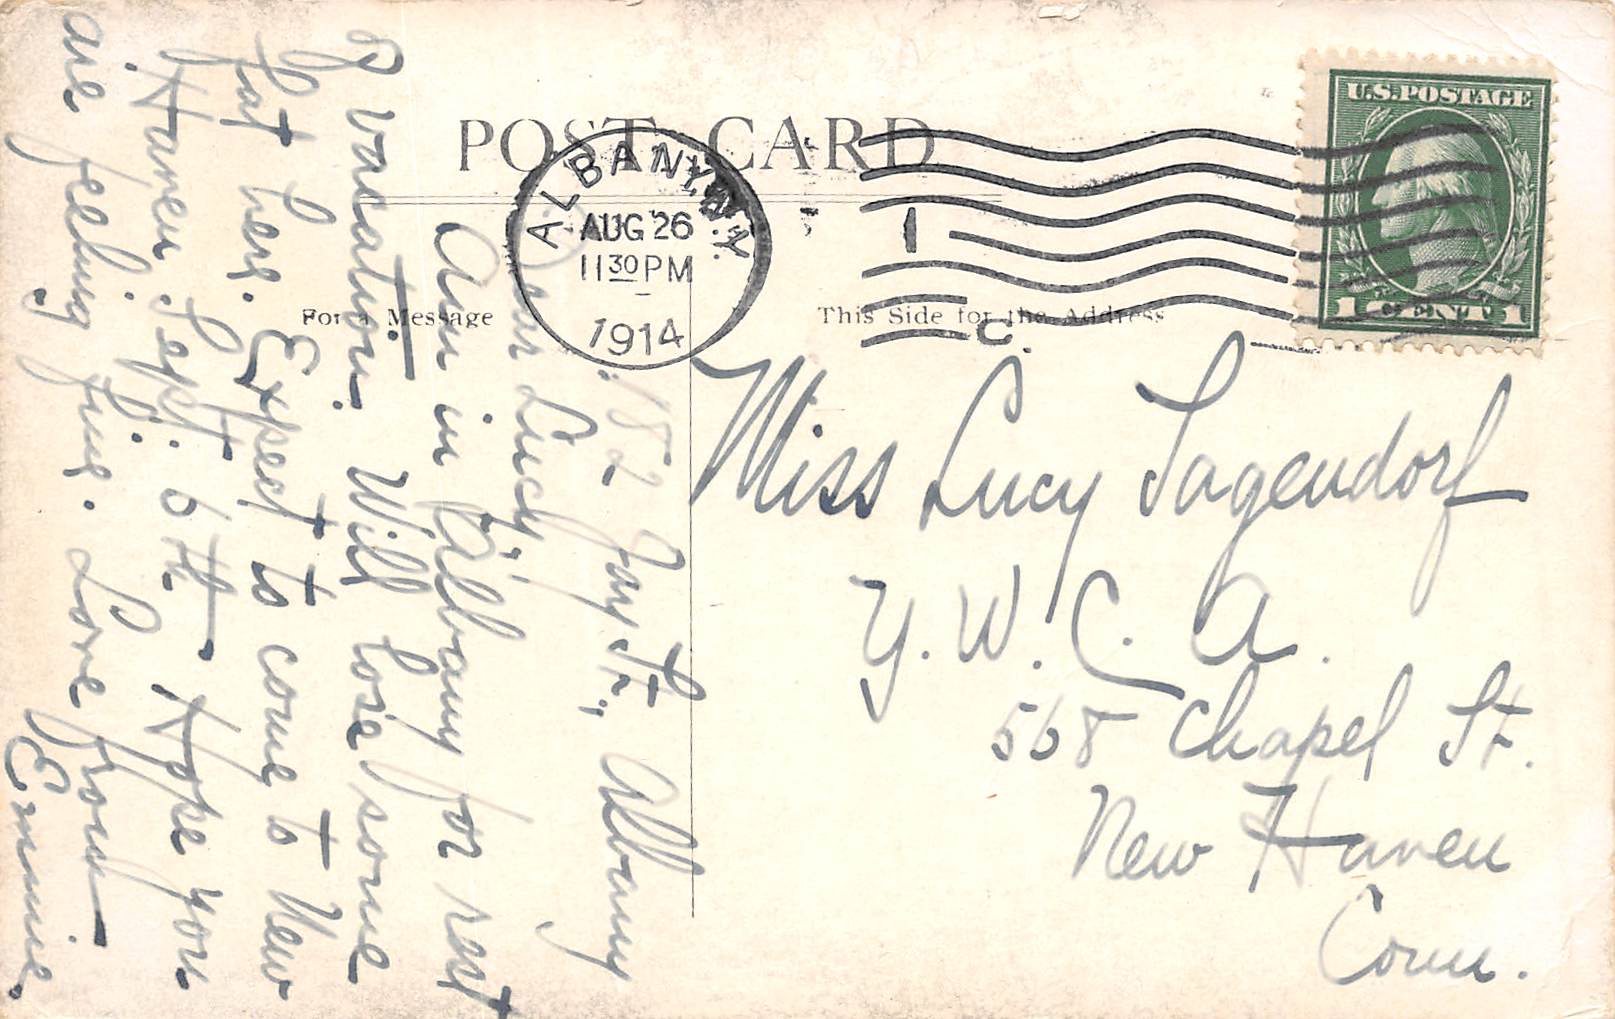 POST CARD
ALBANY, N.Y.
AUG 26
11 30 PM
1914
1
C.
U.S. POSTAGE
1 CENT 1
For a Message
This Side for the Address
182 Jay St., Albany
Dear Lucy:
Am in Albany for rest
& vacation. Will lose some
fat here. Expect to come to New
Haven Sept. 6th. Hope you
are feeling fine. Love from
Erminie.
Miss Lucy Sagendorf
Y. W. C. A.
568 Chapel St.
New Haven
Conn.